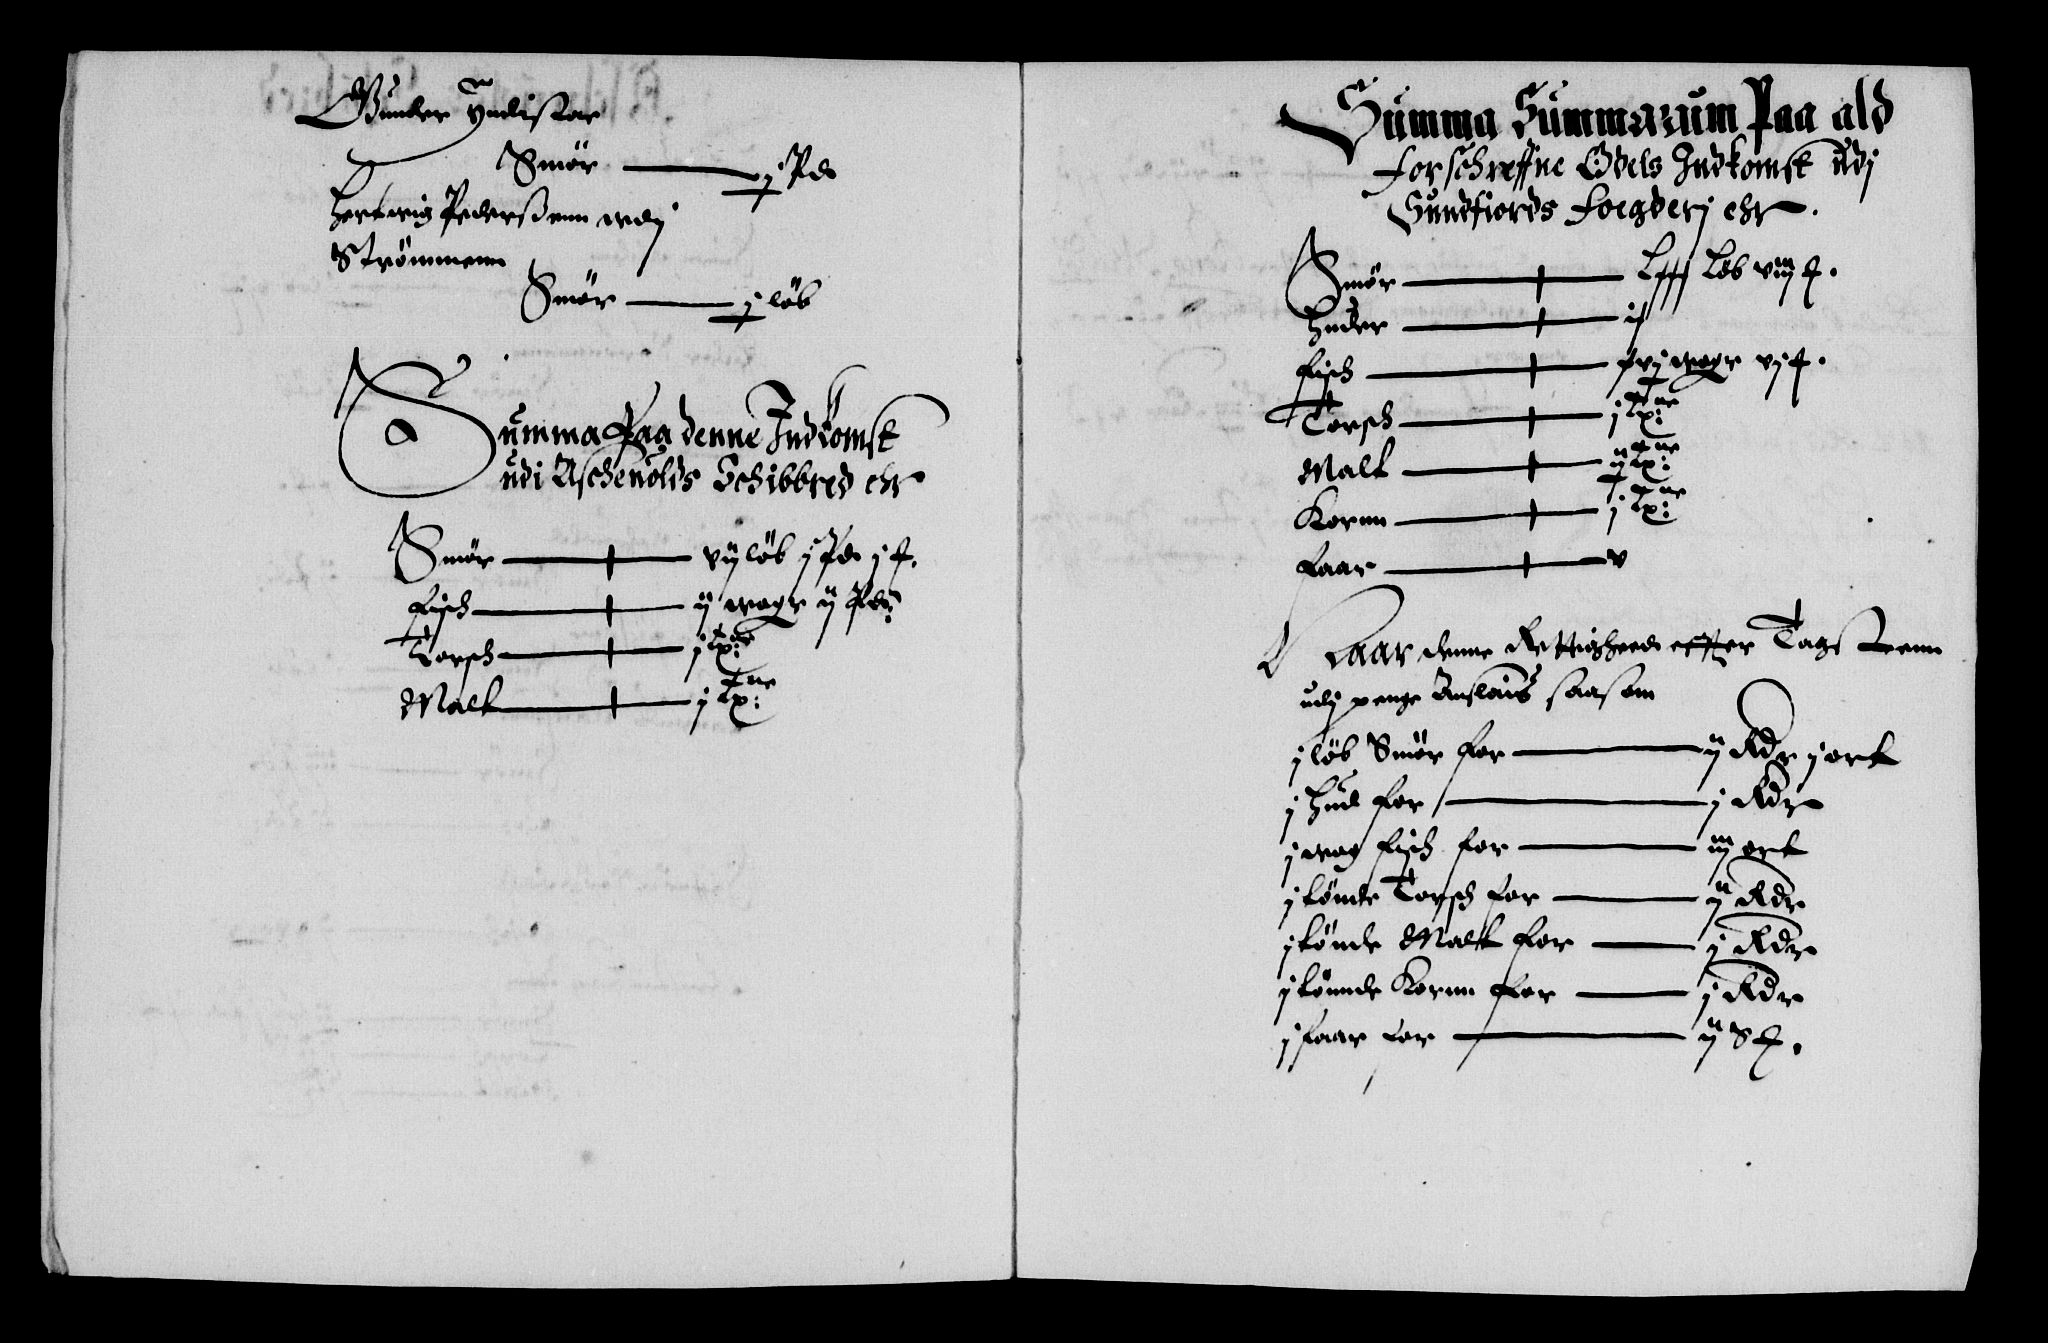 Gunder Yndistar
Smör — j Pd
Hertwig Pederssenn wdj
Strömmenn
Smör — j löb
Summa Paa denne Indkomst
udi Ascheuolds Schibbred ehr
Smör — vij löb j Pd j ₰.
Fisch — ij wogr ij Pd:
Torsch — j Tne
Malt — j Tne
Summa Summarum Paa ald
forschreffne Odels Indkomst udj
Sundfiords Foegderj ehr.
Smör — Löb viij ₰.
Huder —
Fisch — wogr vj ₰.
Torsch — j Tne
Malt — ij Tne
Kornn — j Tne
Faar — v
Naar denne Rettigheed effter Tagstenn
udj penge Anslaas saasom
j löb Smör for — ij Rdr j ort
j Hud for — j Rdr
j wog Fisch for — iij ort
j tönde Torsch for — ij Rdr
j tönde Malt for — j Rdr
j tönnde Kornn for — j Rdr
j faar for — ij